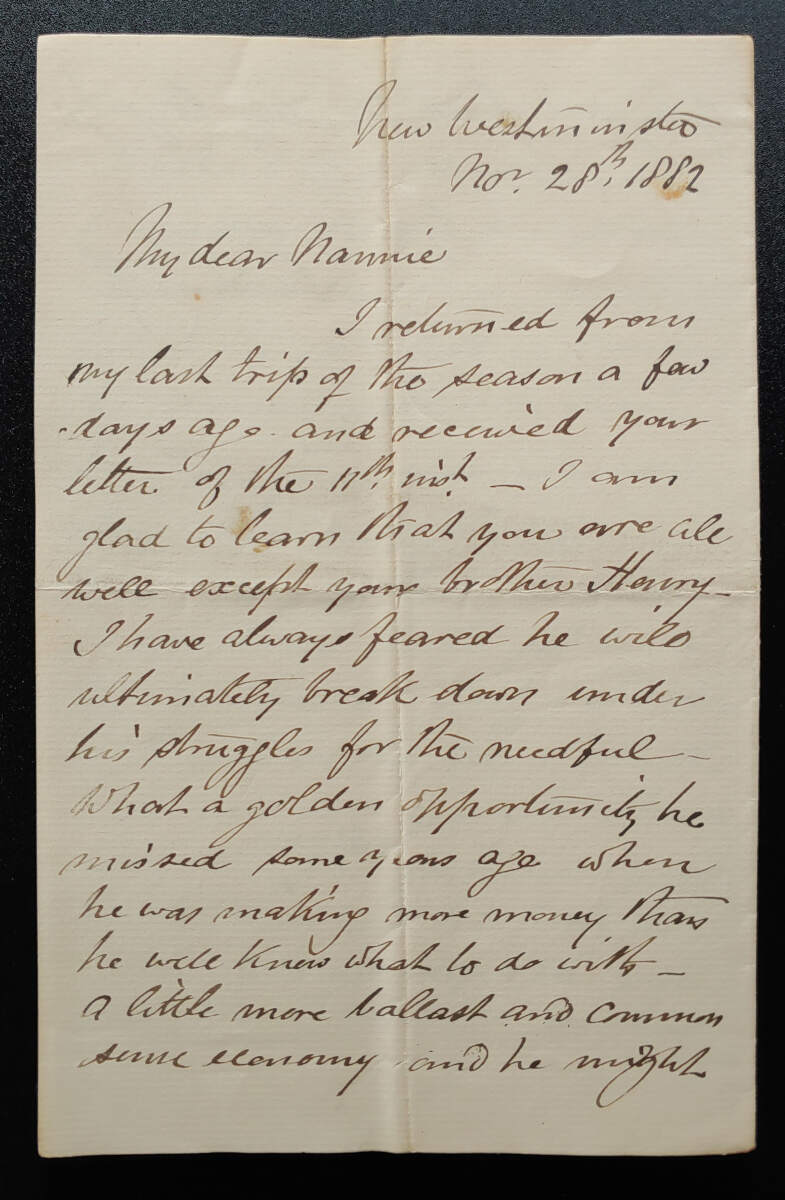 New Westminster
Nov. 28th, 1882
My dear Nannie
I returned from
my last trip of the season a few
days ago and received your
letter of the 11th inst. — I am
glad to learn that you are all
well except your brother Henry —
I have always feared he will
ultimately break down under
his struggles for the needful —
What a golden opportunity he
missed some years ago when
he was making more money than
he well knew what to do with —
a little more ballast and common
sense economy and he might